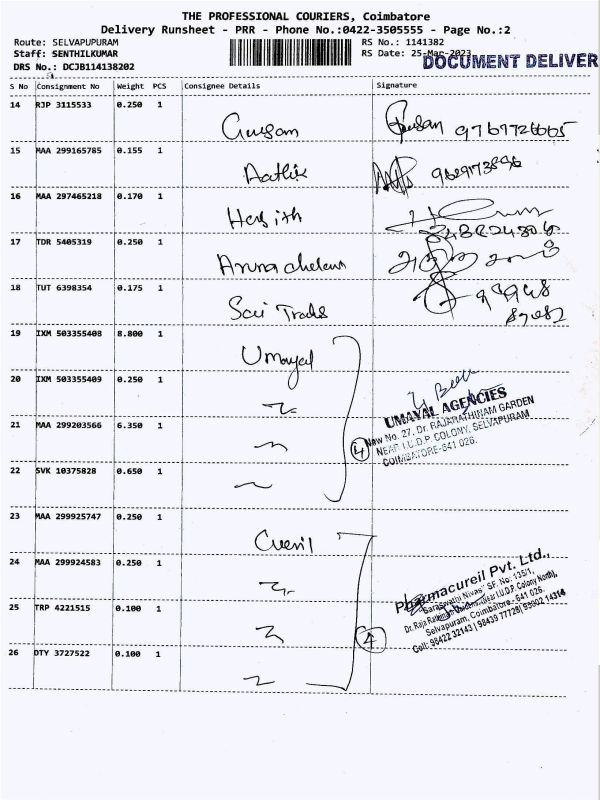 THE PROFESSIONAL COURIERS, Coimbatore
Delivery Runsheet - PRR - Phone No.:0422-3505555 - Page No.:2
Route: SELVAPUPURAM
Staff: SENTHILKUMAR
DRS No.: DCJB114138202
RS No.: 1141382
RS Date: 25-Mar-2023
DOCUMENT DELIVER
S No Consignment No Weight PCS Consignee Details Signature
14 RJP 3115533 0.250 1
15 MAA 299165785 0.155 1 Aathik
16 MAA 297465218 0.170 1 Harjith
17 TDR 5405319 0.250 1 Arunachalam
18 TUT 6398354 0.175 1 Sai Trads
19 IXM 503355408 8.800 1 Umayal
20 IXM 503355409 0.250 1
21 MAA 299203566 6.350 1
22 SVK 10375828 0.650 1
4
UMAYAL AGENCIES
New No. 27, Dr. RAJARATHINAM GARDEN
NEAR I.U.D.P. COLONY, SELVAPURAM
COIMBATORE-641 026.
23 MAA 299925747 0.250 1
24 MAA 299924583 0.250 1
25 TRP 4221515 0.100 1
26 DTY 3727522 0.100 1
4
Pharmacureil Pvt. Ltd.,
"Saraswathy Nivas" SF. No: 135/1,
Selvapuram, Coimbatore- 641 026.
Cell: 98422 32143 | 98439 77728 |